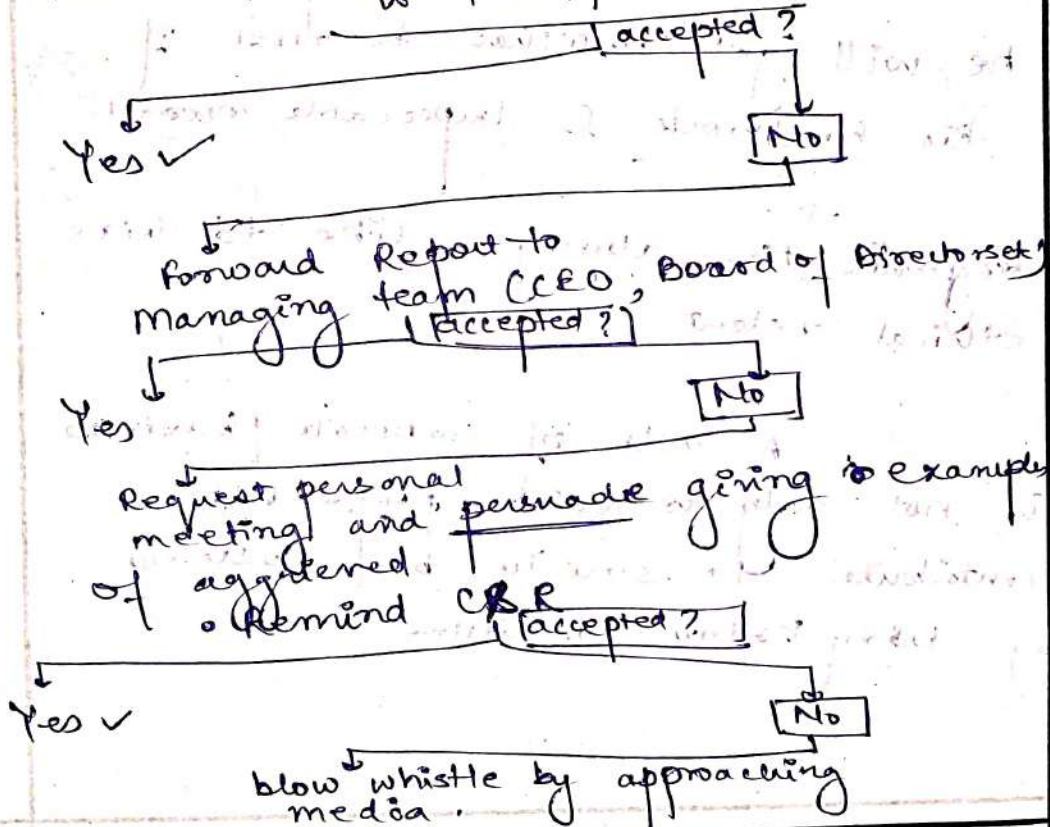 accepted ?
Yes ✓
No
Forward Report to
Managing team (CEO, Board of Directors etc)
accepted ?
Yes
No
Request personal
meeting and persuade giving examples
of aggrieved.
• Remind CSR
accepted ?
Yes ✓
No
blow whistle by approaching
media.